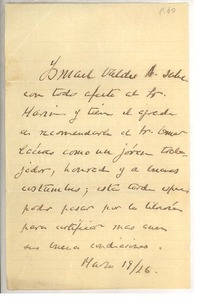 Ismael Valdés V. saluda
con todo afecto al Sr.
Marin y tiene el agrado
de recomendarle al Sr. Omar
Cáceres como un jóven traba-
jador, honrado y de buenas
costumbres; esta tarde espera
poder pasar por la librería
para ratificar mas aun
sus buenas condiciones.
Marzo 19/26.